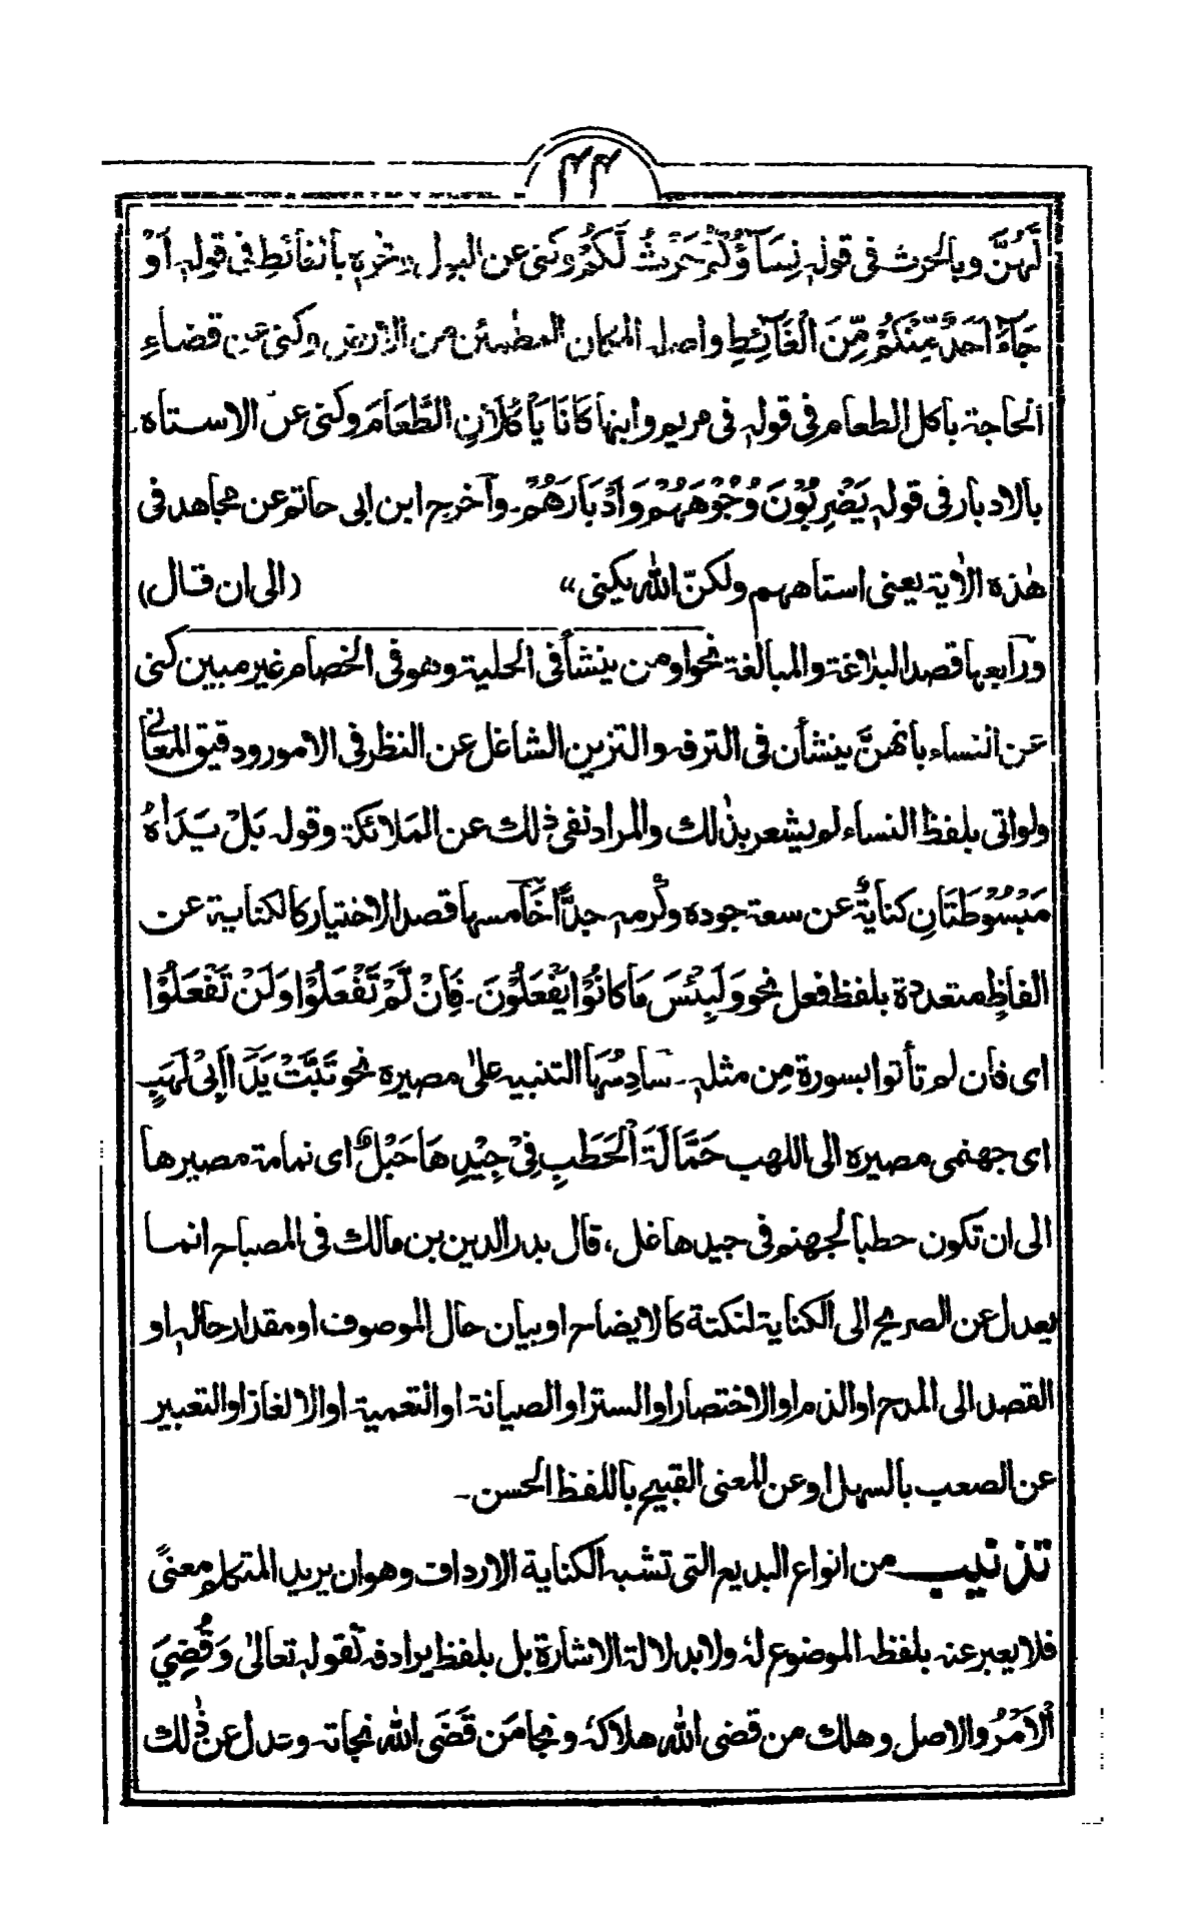 ۴۴
لَّهُنَّ وبالحرث فى قولہٖ نِسَآؤُكُمْ حَرْثٌ لَّكُمْ وكنى عن البول ونحوه بالغائط فى قولہٖ اَوْ
جَآءَ اَحَدٌ مِّنْكُمْ مِّنَ الْغَآئِطِ واصلہ المكان المطمئن من الارض وكنى عن قضاءِ
الحاجة باكل الطعام فى قولہٖ فى مريم وابنها كَانَا يَاْكُلَانِ الطَّعَامَ وكنى عن الاستاه
بالادبار فى قولہٖ يَضْرِبُوْنَ وُجُوْهَهُمْ وَاَدْبَارَهُمْ۔ واخرج ابن ابى حاتم عن مجاهد فى
هٰذه الاٰية يعنى استاههم ولكنّ الله يكنى“ (الى ان قال)
ورابعها قصد البلاغة والمبالغة نحو اومن ينشأ فى الحلية وهو فى الخصام غير مبين كنى
عن النساء بانهنَّ ينشأن فى الترفہ والتزين الشاغل عن النظر فى الامور ودقيق المعانى
ولو اتى بلفظ النساء لم يشعر بذٰلك والمراد نفى ذٰلك عن الملائكة وقولہ بَلْ يَدَاهُ
مَبْسُوْطَتَانِ كنايةٌ عن سعة جوده وكرمہٖ جدًّا خامسها قصد الاختيار كالكناية عن
الفاظٍ متعددة بلفظ فعل نحو وَلَبِئْسَ مَا كَانُوْا يَفْعَلُوْنَ۔ فَاِنْ لَّمْ تَفْعَلُوْا وَلَنْ تَفْعَلُوْا
اى فان لم تأتوا بسورة مِن مثلہٖ۔ سادِسُهَا التنبيہ علىٰ مصيره نحو تَبَّتْ يَدَا اَبِىْ لَهَبٍ
اى جهنمى مصيره الى اللهب حَمَّالَةَ الْحَطَبِ فِىْ جِيْدِهَا حَبْلٌ اى نمامة مصيرها
الى ان تكون حطبا لجهنم فى جيدها غل، قال بدر الدين بن مالك فى المصباح انما
يعدل عن الصريح الى الكناية لنكتة كالايضاح او بيان حال الموصوف او مقدار حالہٖ او
القصد الى المدح او الذم او الاختصار او الستر او الصيانة او التعمية او الالغاز او التعبير
عن الصعب بالسهل او عن المعنى القبيح باللفظ الحسن۔
تذنيب من انواع البديع التى تشبہ الكناية الارداف وهو ان يريد المتكلم معنىً
فلا يعبر عنہ بلفظہ الموضوع لہٗ ولا بدلالة الاشارة بل بلفظ يرادفہ كقولہٖ تعالىٰ وَقُضِىَ
الْاَمْرُ والاصل وهلك من قضى الله هلاكہٗ ونجا مَن قَضَى الله نجاتہ وعدل عن ذٰلك